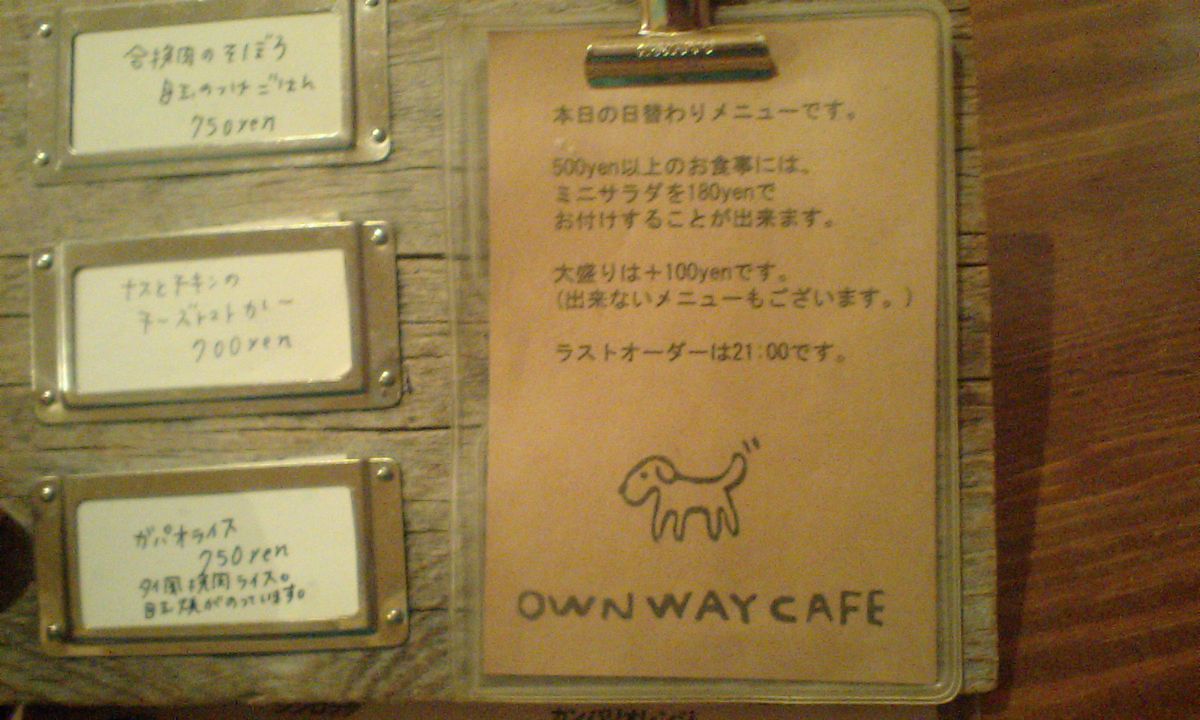 合挽肉のそぼろ
目玉のっけごはん
750yen
ナスとチキンの
チーズトマトカレー
700yen
ガパオライス
750yen
タイ風挽肉ライス。
目玉焼がのっています。
本日の日替わりメニューです。
500yen以上のお食事には、
ミニサラダを180yenで
お付けすることが出来ます。
大盛りは+100yenです。
(出来ないメニューもございます。)
ラストオーダーは21:00です。
OWN WAY CAFE